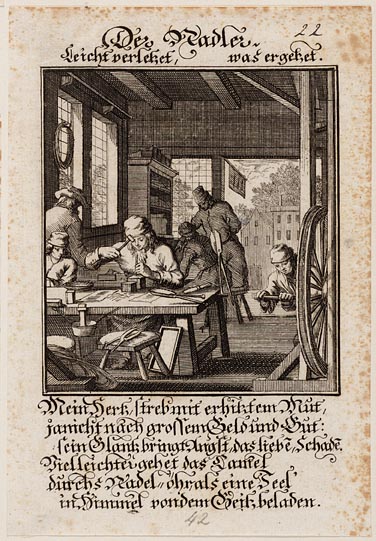 Der Nadler.
22
Leicht verletzet, was ergetzet.
Mein Hertz, streb mit erhitztem Mut,
ja nicht nach grossem Geld und Gut:
sein Glantz bringt Angst, das liebē, Schadē.
Viel leichter gehet das Camel
durchs Nadel-öhr als eine Seel
in Himmel von dem Geitz beladen.
42